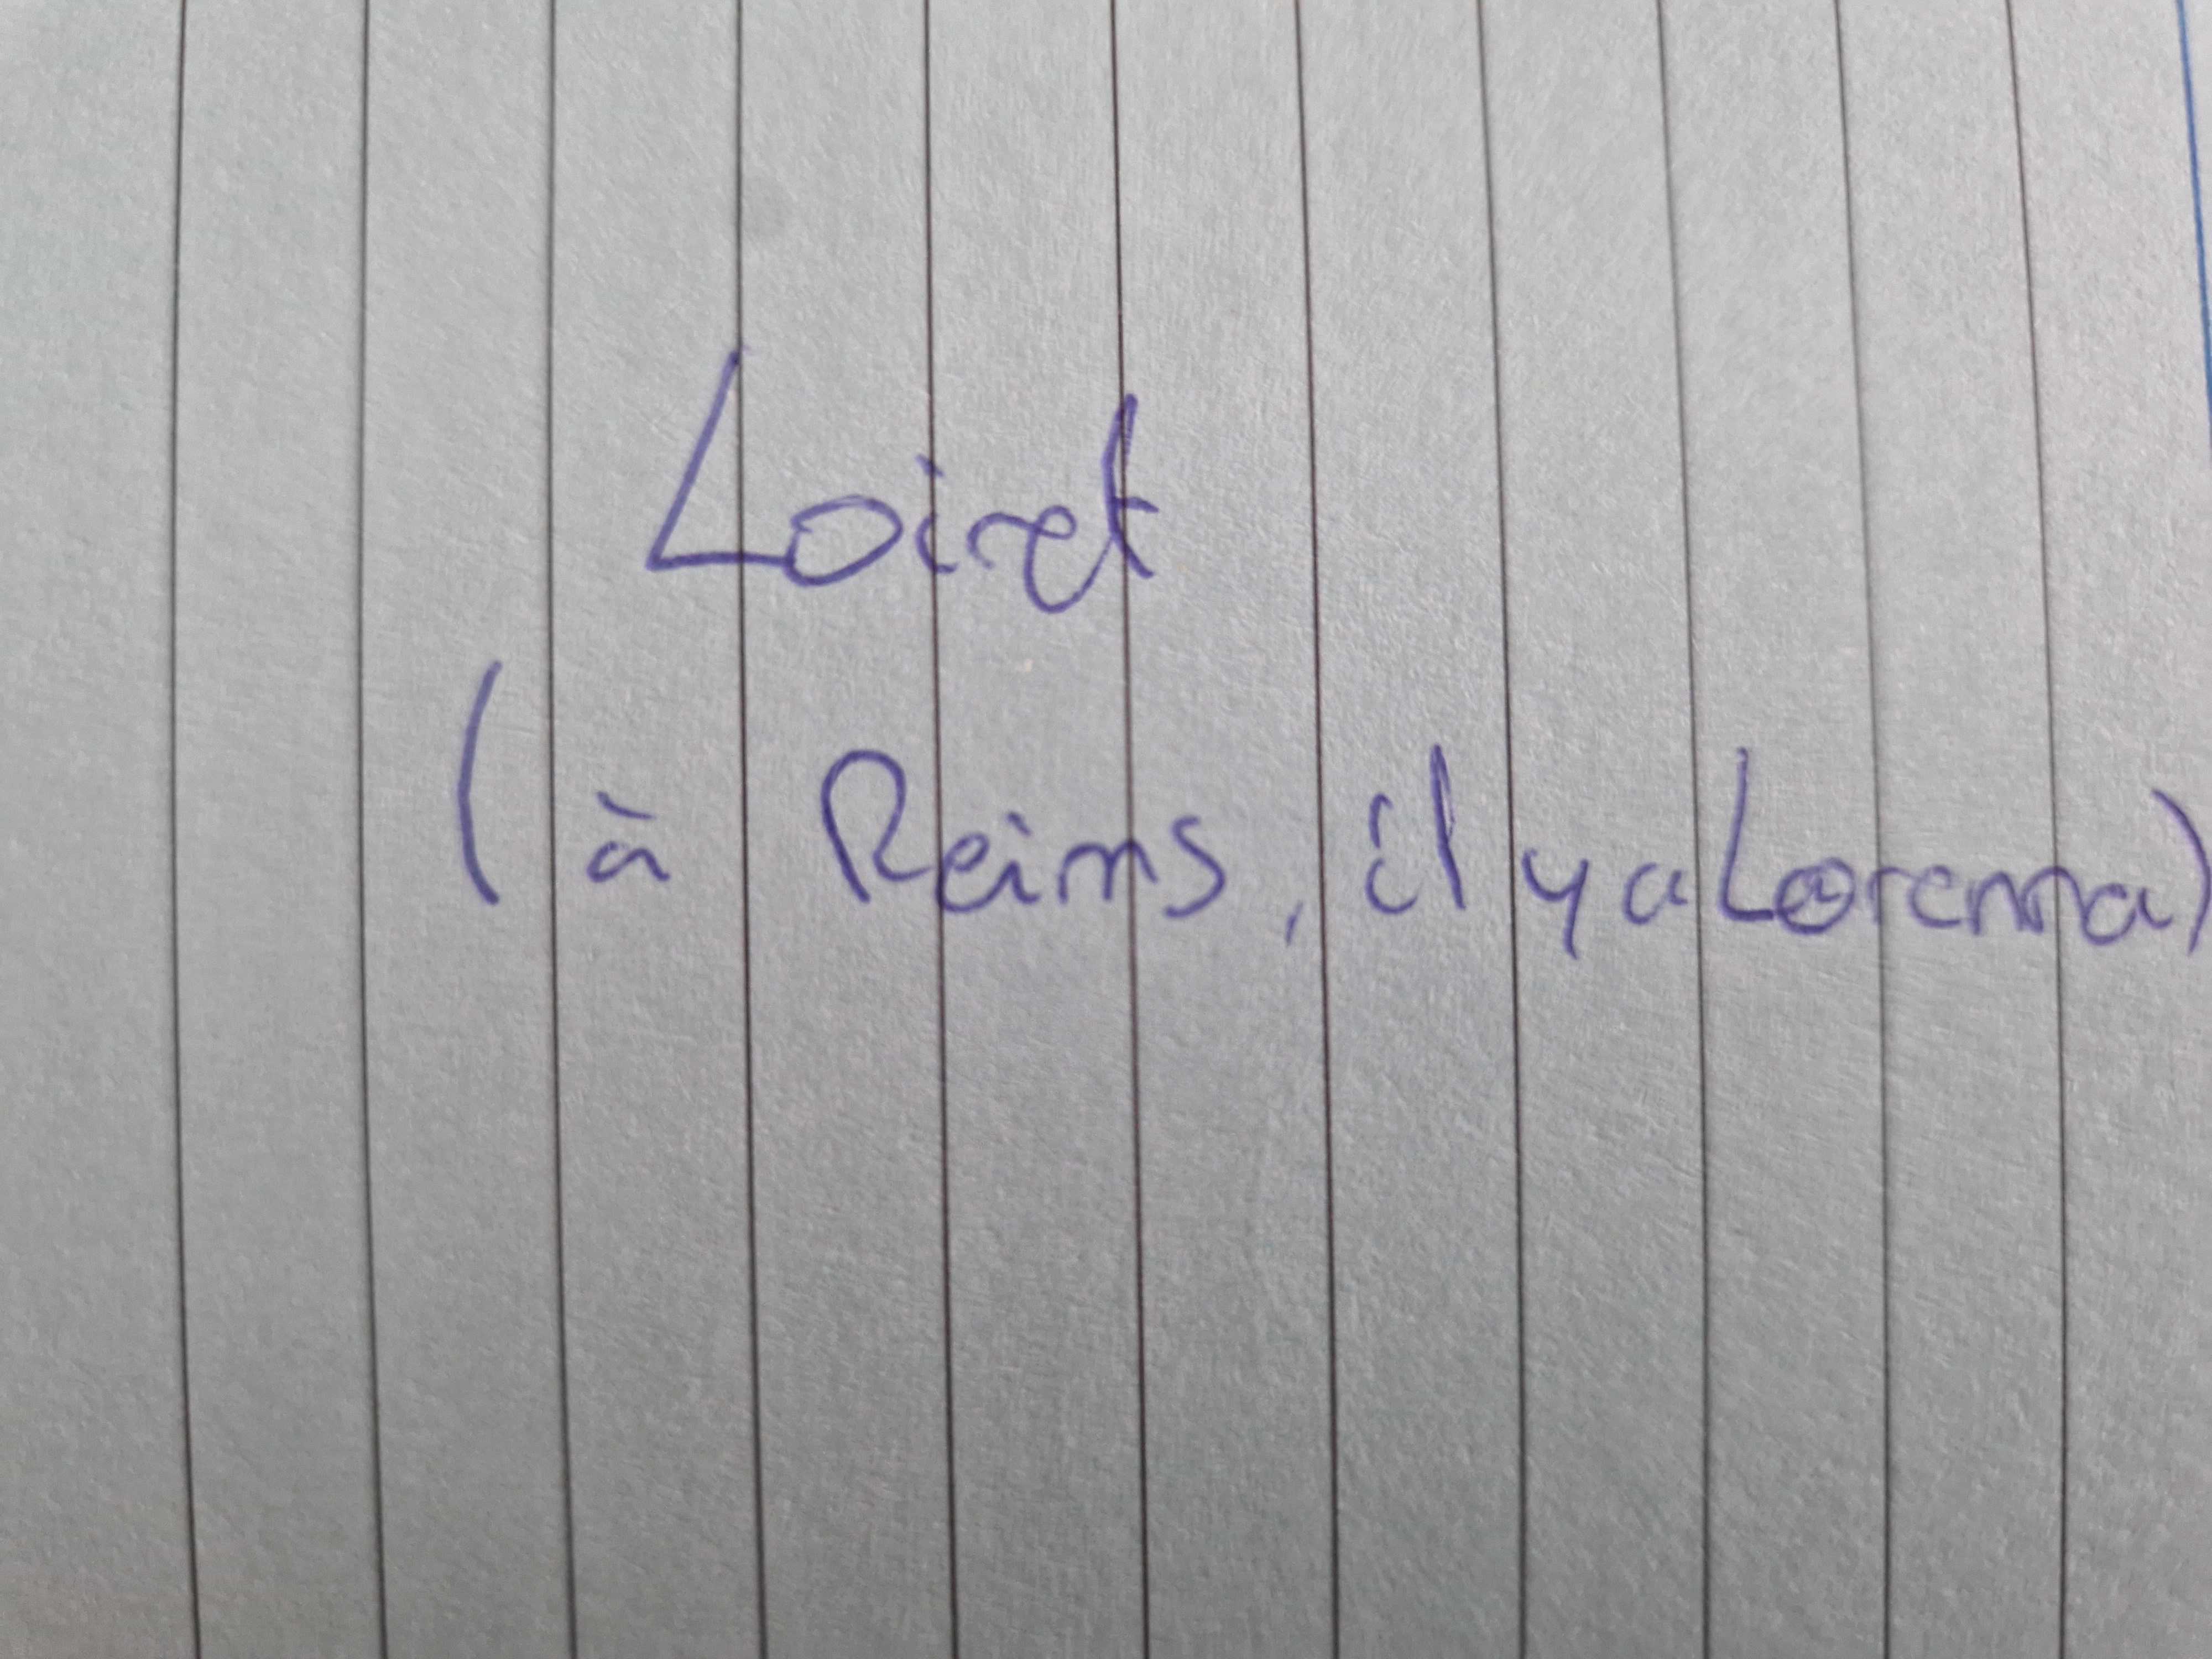 Loiret
(à Reims, il y a Lorenna)